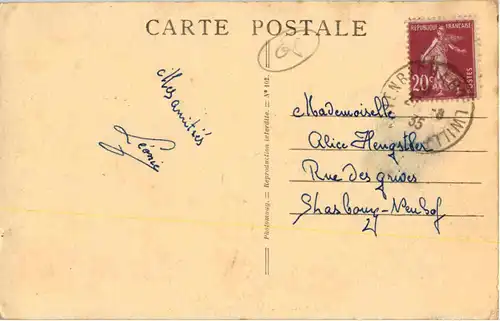 CARTE POSTALE
62
RÉPUBLIQUE FRANÇAISE
20c
POSTES
Mes amitiés
Léonie
Photomang. – Reproduction interdite. – No 102.
Mademoiselle
Alice Hengstler
Rue des grives
Strasbourg-Neuhof